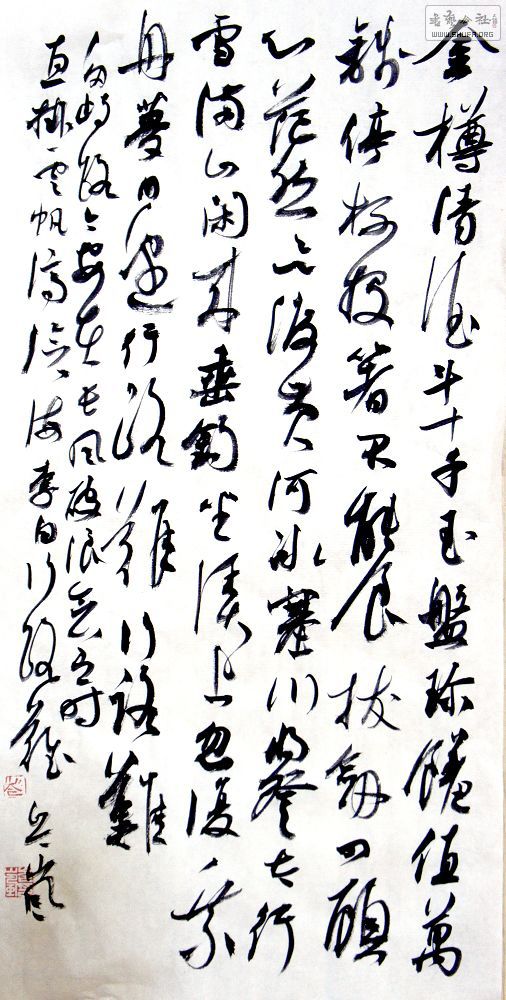 金樽清酒斗十千玉盤珍饈值萬
錢停杯投箸不能食拔劍四顧
心茫然欲渡黄河冰塞川將登太行
雪滿山閑來垂釣坐溪上忽復乘
舟夢日邊行路難行路難
多歧路今安在長风破浪會有时
直掛雲帆濟滄海李白行路難
书艺公社
WWW.SHUFA.ORG